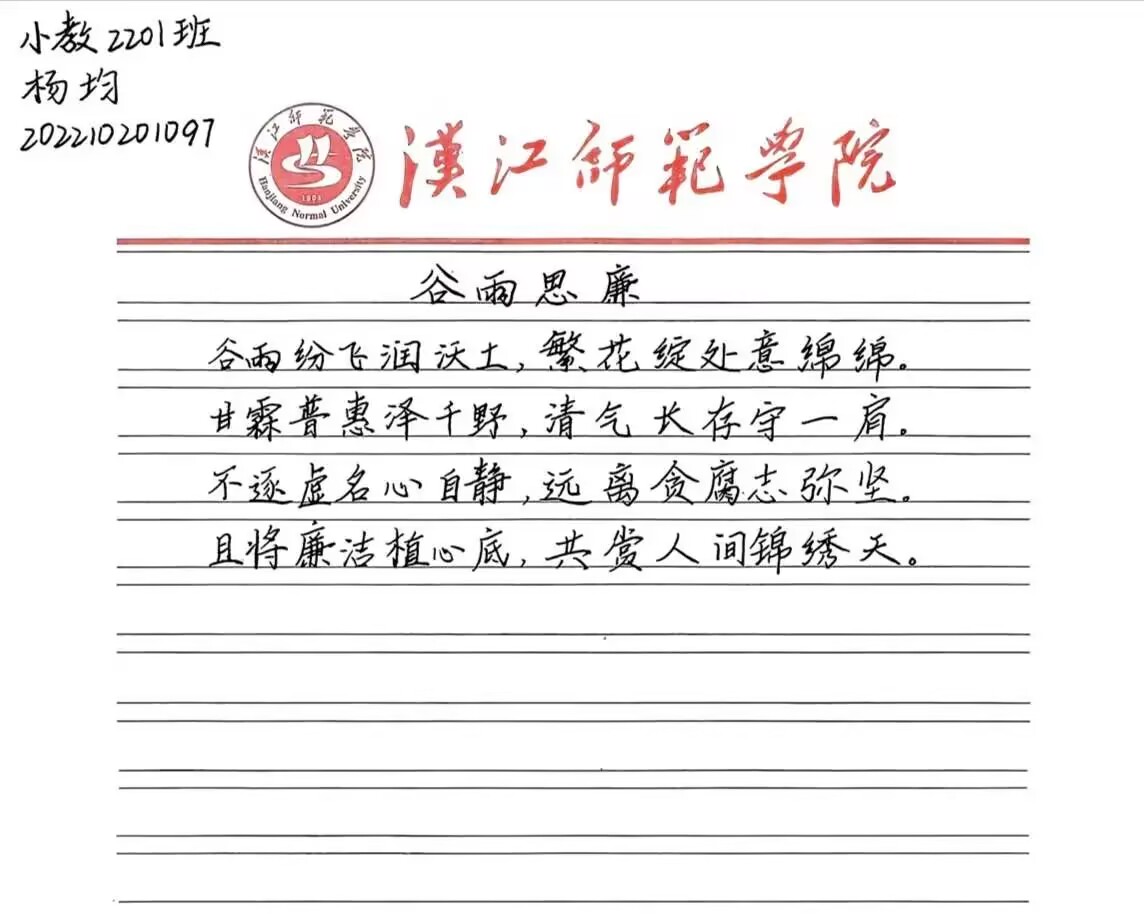 小教2201班
杨均
202210201097
漢江师範學院
漢江师範學院
1904
Hanjiang Normal University
谷雨思廉
谷雨纷飞润沃土,繁花绽处意绵绵。
甘霖普惠泽千野,清气长存守一肩。
不逐虚名心自静,远离贪腐志弥坚。
且将廉洁植心底,共赏人间锦绣天。